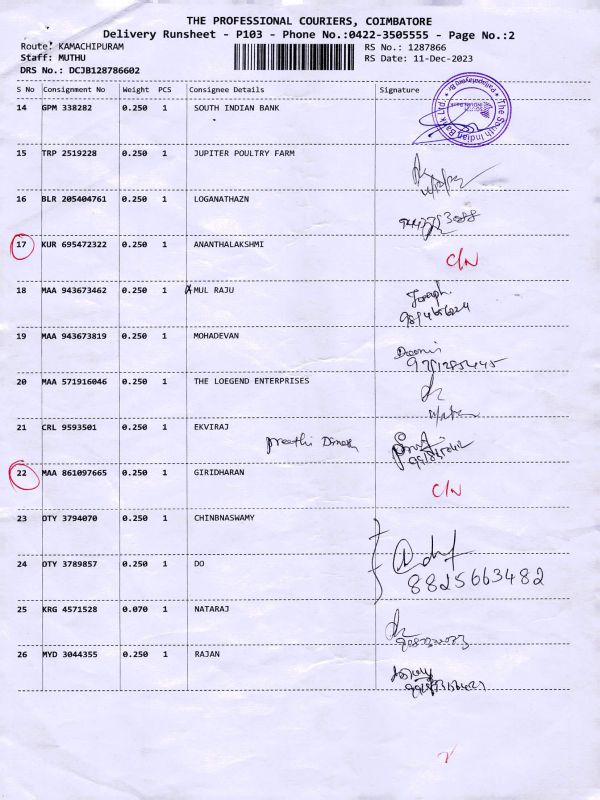 THE PROFESSIONAL COURIERS, COIMBATORE
Delivery Runsheet - P103 - Phone No.:0422-3505555 - Page No.:2
Route: KAMACHIPURAM RS No.: 1287866
Staff: MUTHU RS Date: 11-Dec-2023
DRS No.: DCJB128786602
S No Consignment No Weight PCS Consignee Details Signature
14 GPM 338282 0.250 1 SOUTH INDIAN BANK
The South Indian Bank Ltd.
15 TRP 2519228 0.250 1 JUPITER POULTRY FARM
16 BLR 205404761 0.250 1 LOGANATHAZN
17 KUR 695472322 0.250 1 ANANTHALAKSHMI C/N
18 MAA 943673462 0.250 1 AMUL RAJU
19 MAA 943673819 0.250 1 MOHADEVAN
20 MAA 571916046 0.250 1 THE LOEGEND ENTERPRISES
21 CRL 9593501 0.250 1 EKVIRAJ
22 MAA 861097665 0.250 1 GIRIDHARAN C/N
23 OTY 3794070 0.250 1 CHINBNASWAMY
24 OTY 3789857 0.250 1 DO
8825663482
25 KRG 4571528 0.070 1 NATARAJ
26 MYD 3044355 0.250 1 RAJAN